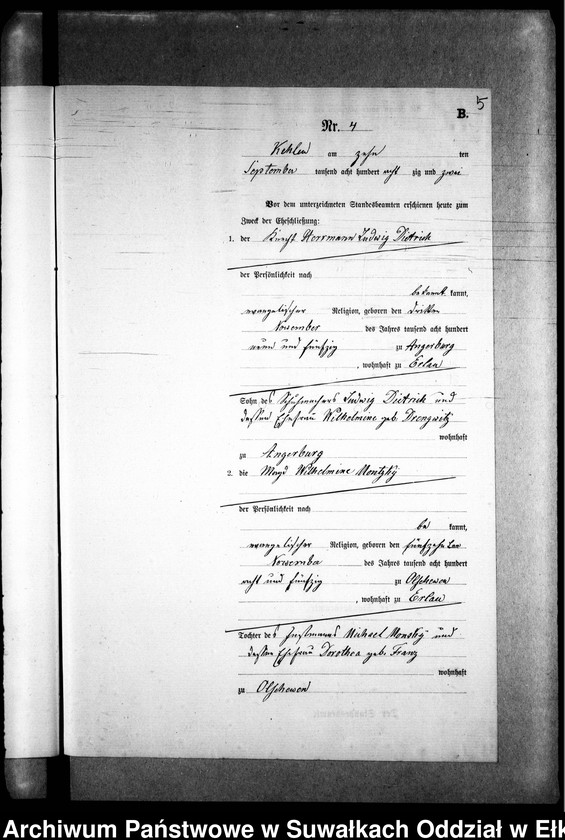 5
B.
Nr. 4
Kehlen am zehn ten
September tausend acht hundert acht zig und zwei
Vor dem unterzeichneten Standesbeamten erschienen heute zum
Zweck der Eheschließung:
1. der Knecht Herrmann Ludwig Dietrich
der Persönlichkeit nach
bekannt kannt,
evangelischer Religion, geboren den dritten
November des Jahres tausend acht hundert
neun und fünfzig zu Angerburg
, wohnhaft zu Erlau
Sohn des Schuhmachers Ludwig Dietrich und
dessen Ehefrau Wilhelmine geb. Drengwitz
wohnhaft
zu Angerburg
2. die Magd Wilhelmine Montzky
der Persönlichkeit nach
be kannt,
evangelischer Religion, geboren den fünfzehnten
November des Jahres tausend acht hundert
acht und fünfzig zu Olschewen
, wohnhaft zu Erlau
Tochter des Instmanns Michael Monsky und
dessen Ehefrau Dorothea geb. Franz
wohnhaft
zu Olschewen
Archiwum Państwowe w Suwałkach Oddział w Ełk